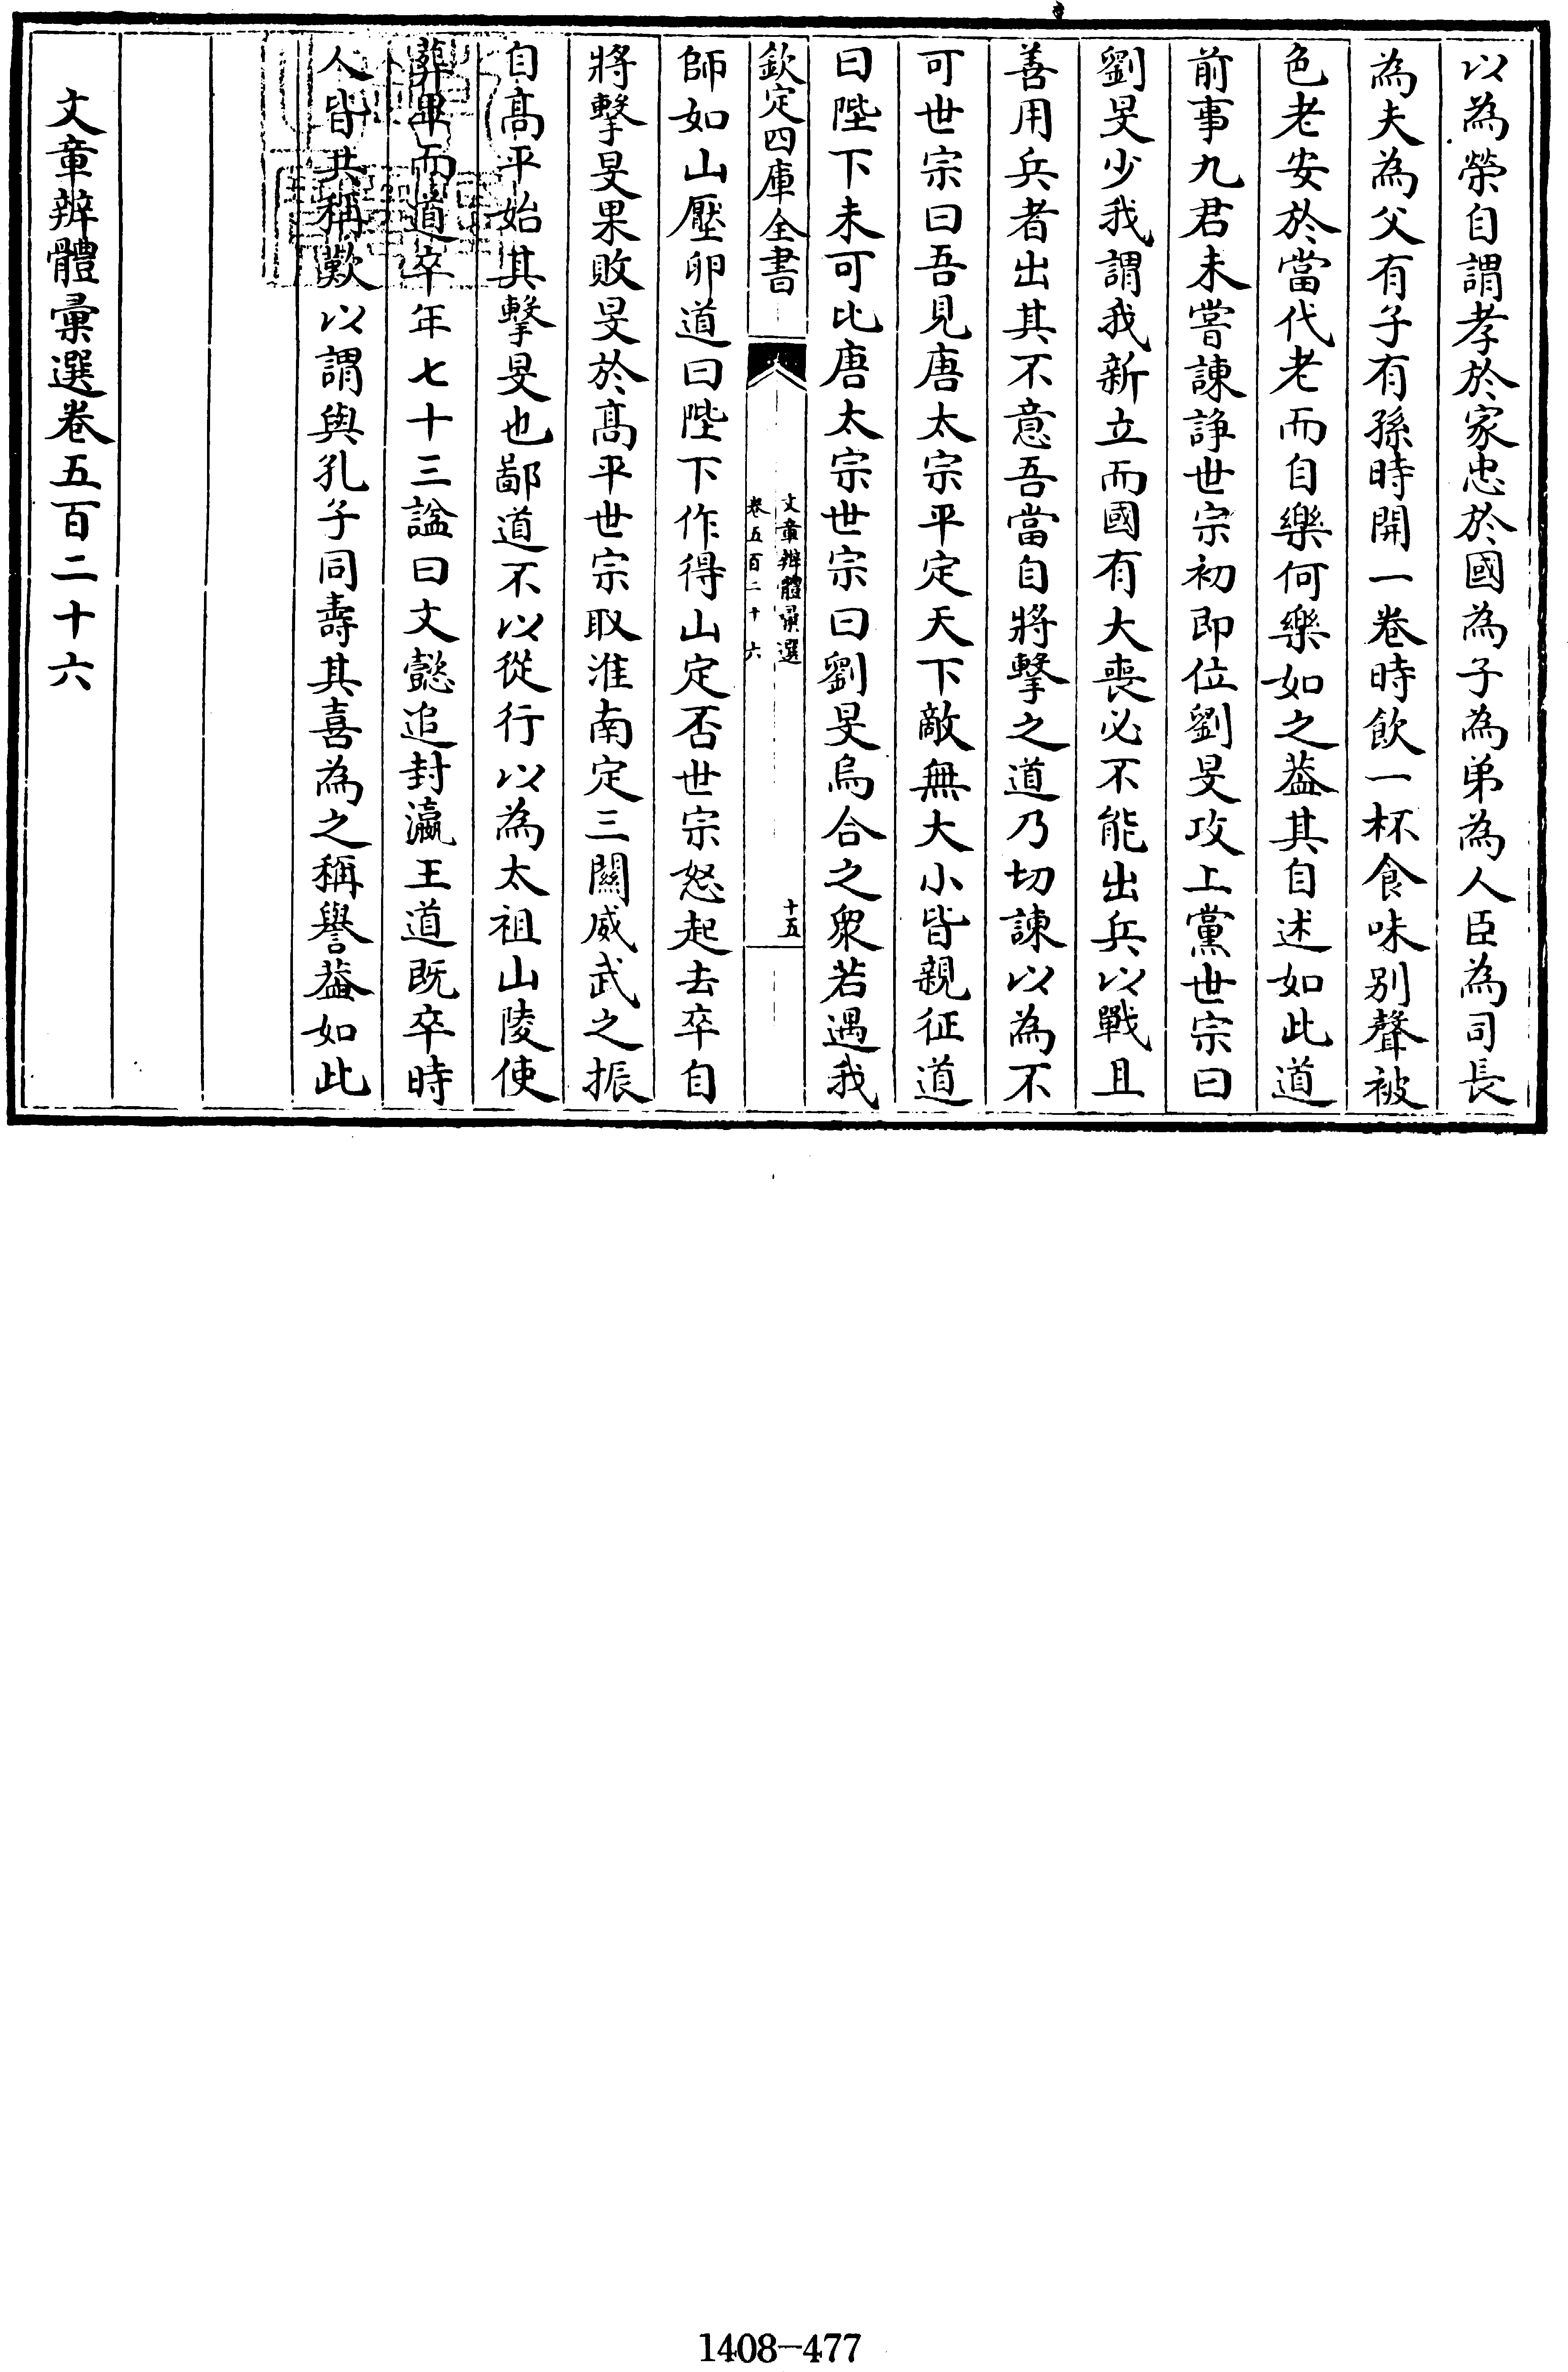 以為榮自謂孝於家忠於國為子為弟為人臣為司長
為夫為父有子有孫時開一卷時飲一杯食味别聲被
色老安於當代老而自樂何樂如之葢其自述如此道
前事九君未嘗諫諍世宗初即位劉旻攻上黨世宗曰
劉旻少我謂我新立而國有大喪必不能出兵以戰且
善用兵者出其不意吾當自將擊之道乃切諫以為不
可世宗曰吾見唐太宗平定天下敵無大小皆親征道
曰陛下未可比唐太宗世宗曰劉旻烏合之衆若遇我
欽定四庫全書
文章辨體彙選
卷五百二十六
十五
師如山壓卵道曰陛下作得山定否世宗怒起去卒自
將擊旻果敗旻於髙平世宗取淮南定三關威武之振
自髙平始其擊旻也鄙道不以從行以為太祖山陵使
葬畢而道卒年七十三諡曰文懿追封瀛王道既卒時
人皆共稱歎以謂與孔子同壽其喜為之稱譽葢如此
文章辨體彙選卷五百二十六
1408-477